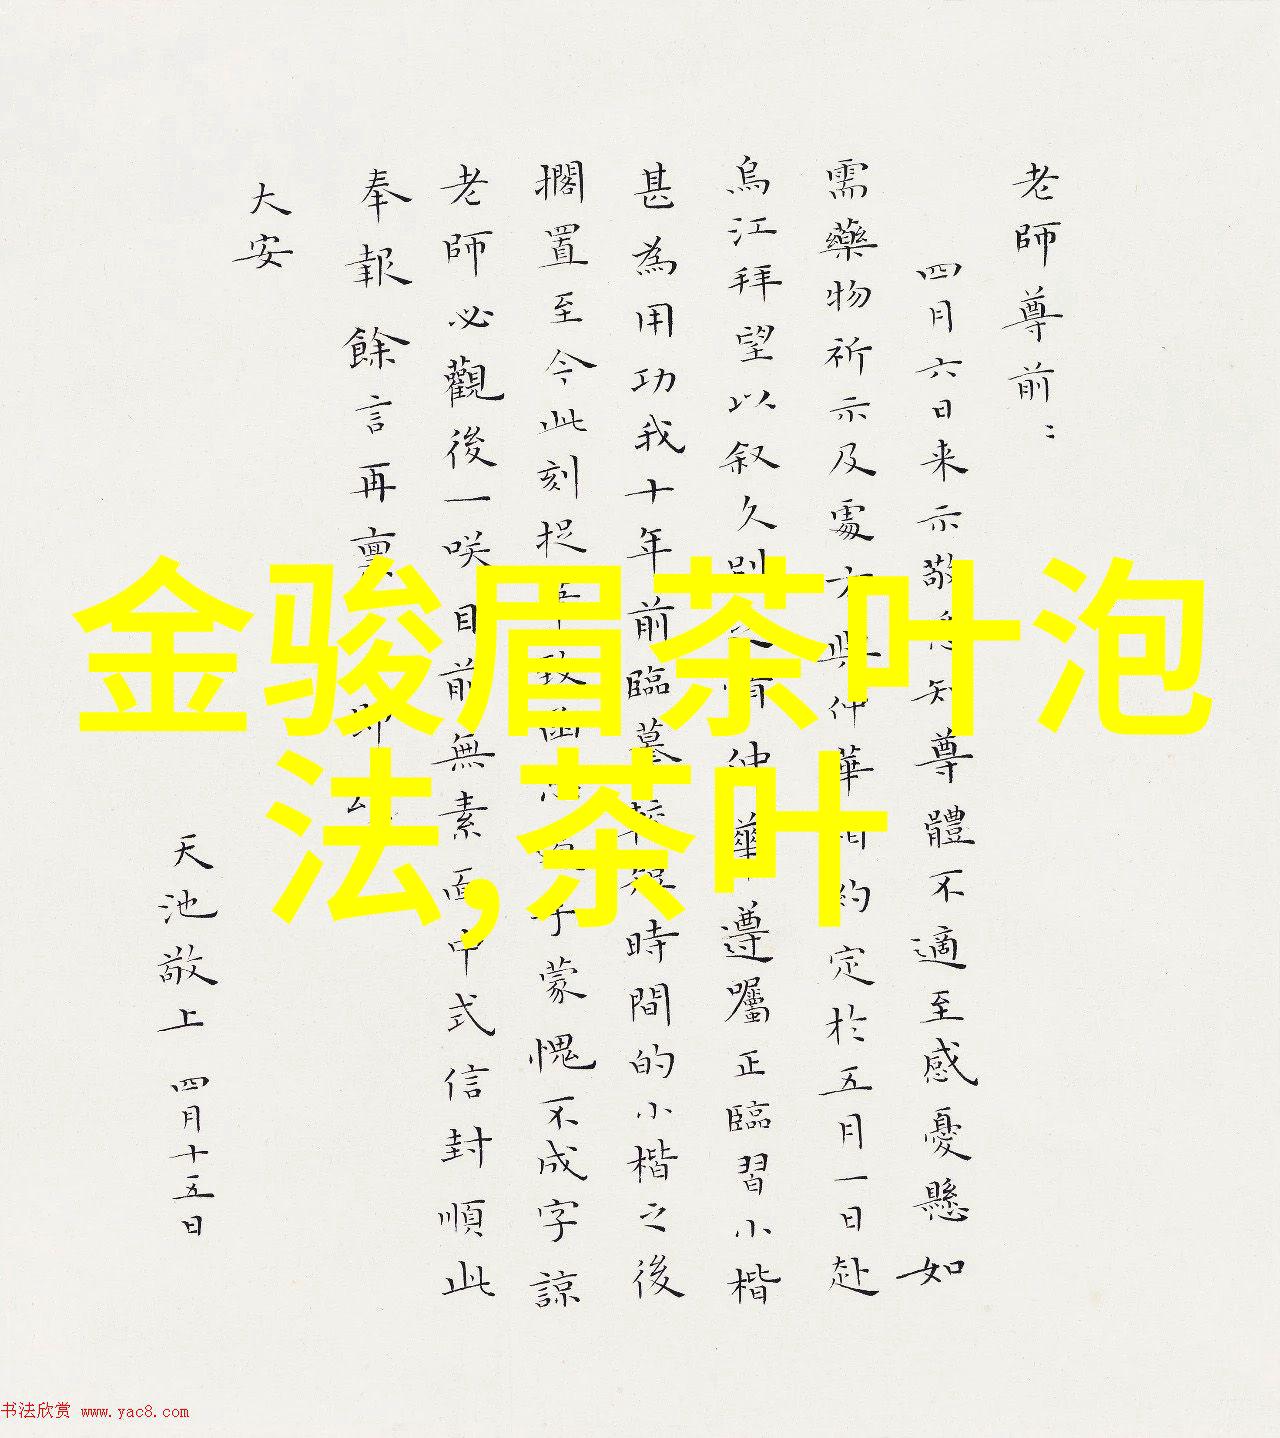 老師尊前：
四月六日来示敬知尊體不適至感憂懸如
需藥物祈示及處方與仲華相約定於五月一日赴
烏江拜望以叙久別情仲華遵囑正臨習小楷
甚為用功我十年前臨摹較短時間的小楷之後
擱置至今此刻捉筆致函手蒙愧不成字諒
老師必觀後一咲目前無素面中式信封順此
奉報餘言再禀即
大安
天池敬上 四月十五日
金骏眉茶叶泡
法,茶叶
书法欣赏 www.yac8.com